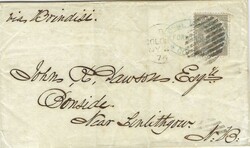 via Brindisi.
John R. Dawson Esqre
Bonside
Near Linlithgow.
N.B.